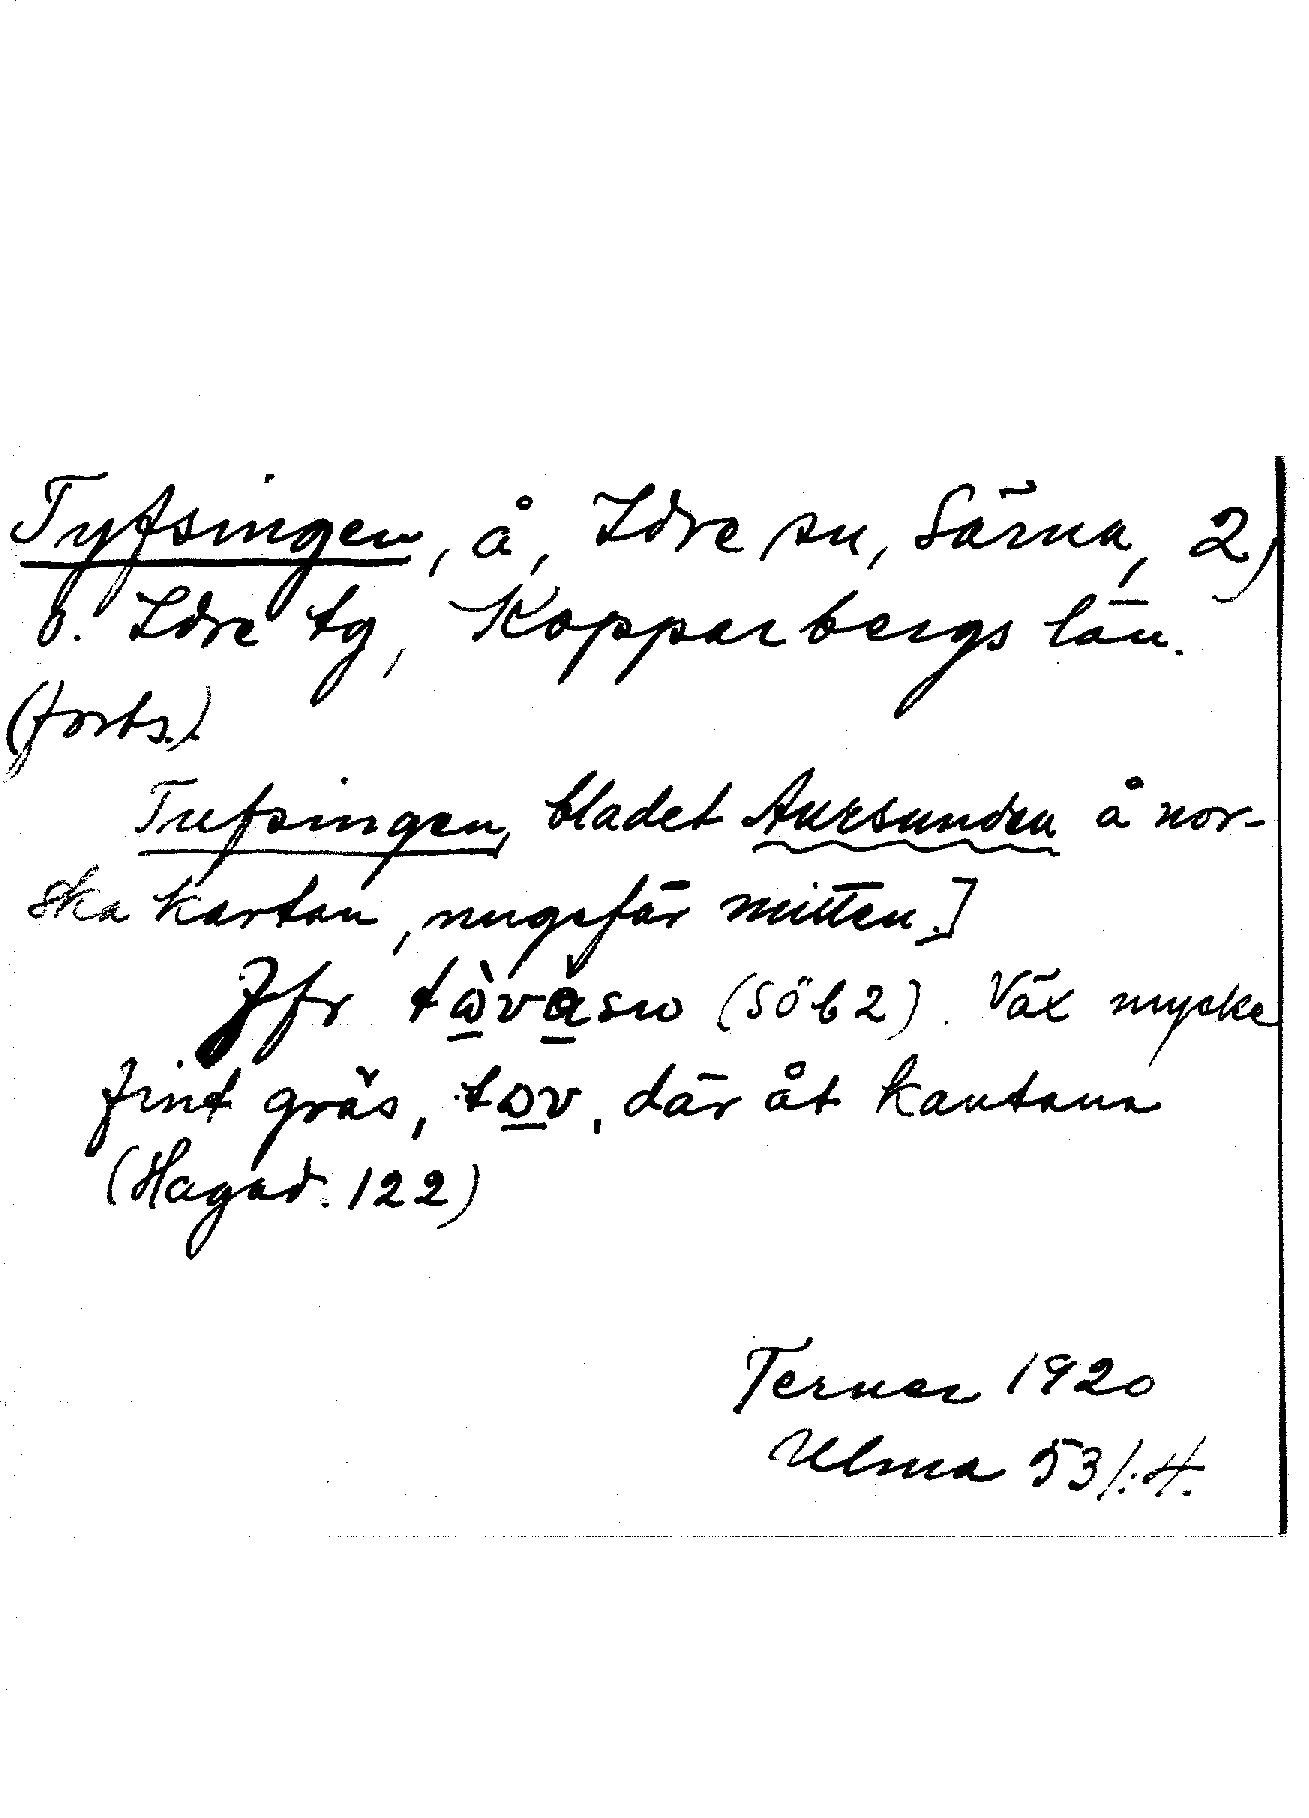 Tyfsingen, å, Idre sn, Särna, 2)
o. Idre tg, Kopparbergs län.
(forts.)
Tufsingen, bladet Aursunden å nor-
ska kartan, ungefär mitten.]
Jfr (Söb2). Väx mycke
fint gräs, där åt kantana
(Hagad. 122)
Terner 1920
Ulma 53/:4.